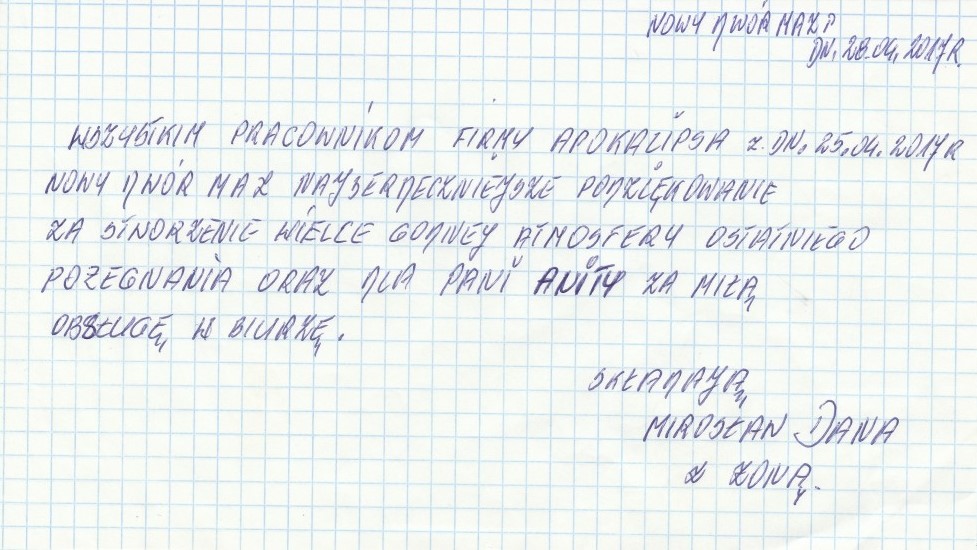 NOWY DWÓR MAZ P
DN. 28.04.2017R.
WSZYSTKIM PRACOWNIKOM FIRMY APOKALIPSA Z DN. 25.04.2017R
NOWY DWÓR MAZ NAJSERDECZNIEJSZE PODZIĘKOWANIE
ZA STWORZENIE WIELCE GODNEJ ATMOSFERY OSTATNIEGO
POZEGNANIA ORAZ DLA PANI ANITY ZA MIŁĄ
OBSŁUGĘ W BIURZĘ.
SKŁADAJĄ
MIROSŁAW DANA
Z ZONĄ.